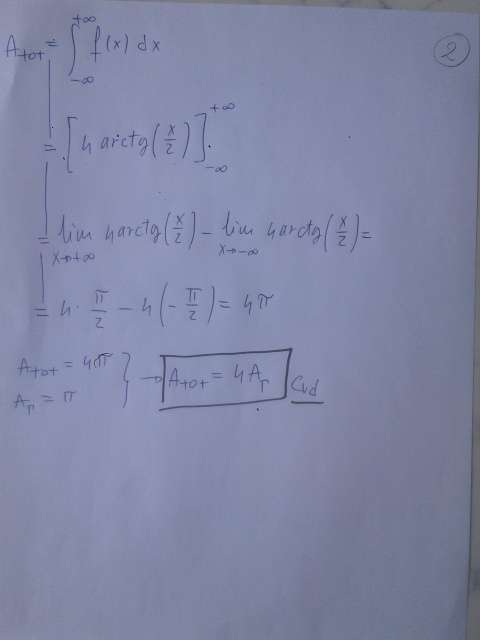 2
A_tot = ∫_{-∞}^{+∞} f(x) dx
= [4 arctg(x/2)]_{-∞}^{+∞}
= lim_{x→+∞} 4 arctg(x/2) - lim_{x→-∞} 4 arctg(x/2) =
= 4 · π/2 - 4(-π/2) = 4π
A_tot = 4π
A_r = π
} → A_tot = 4 A_r cvd